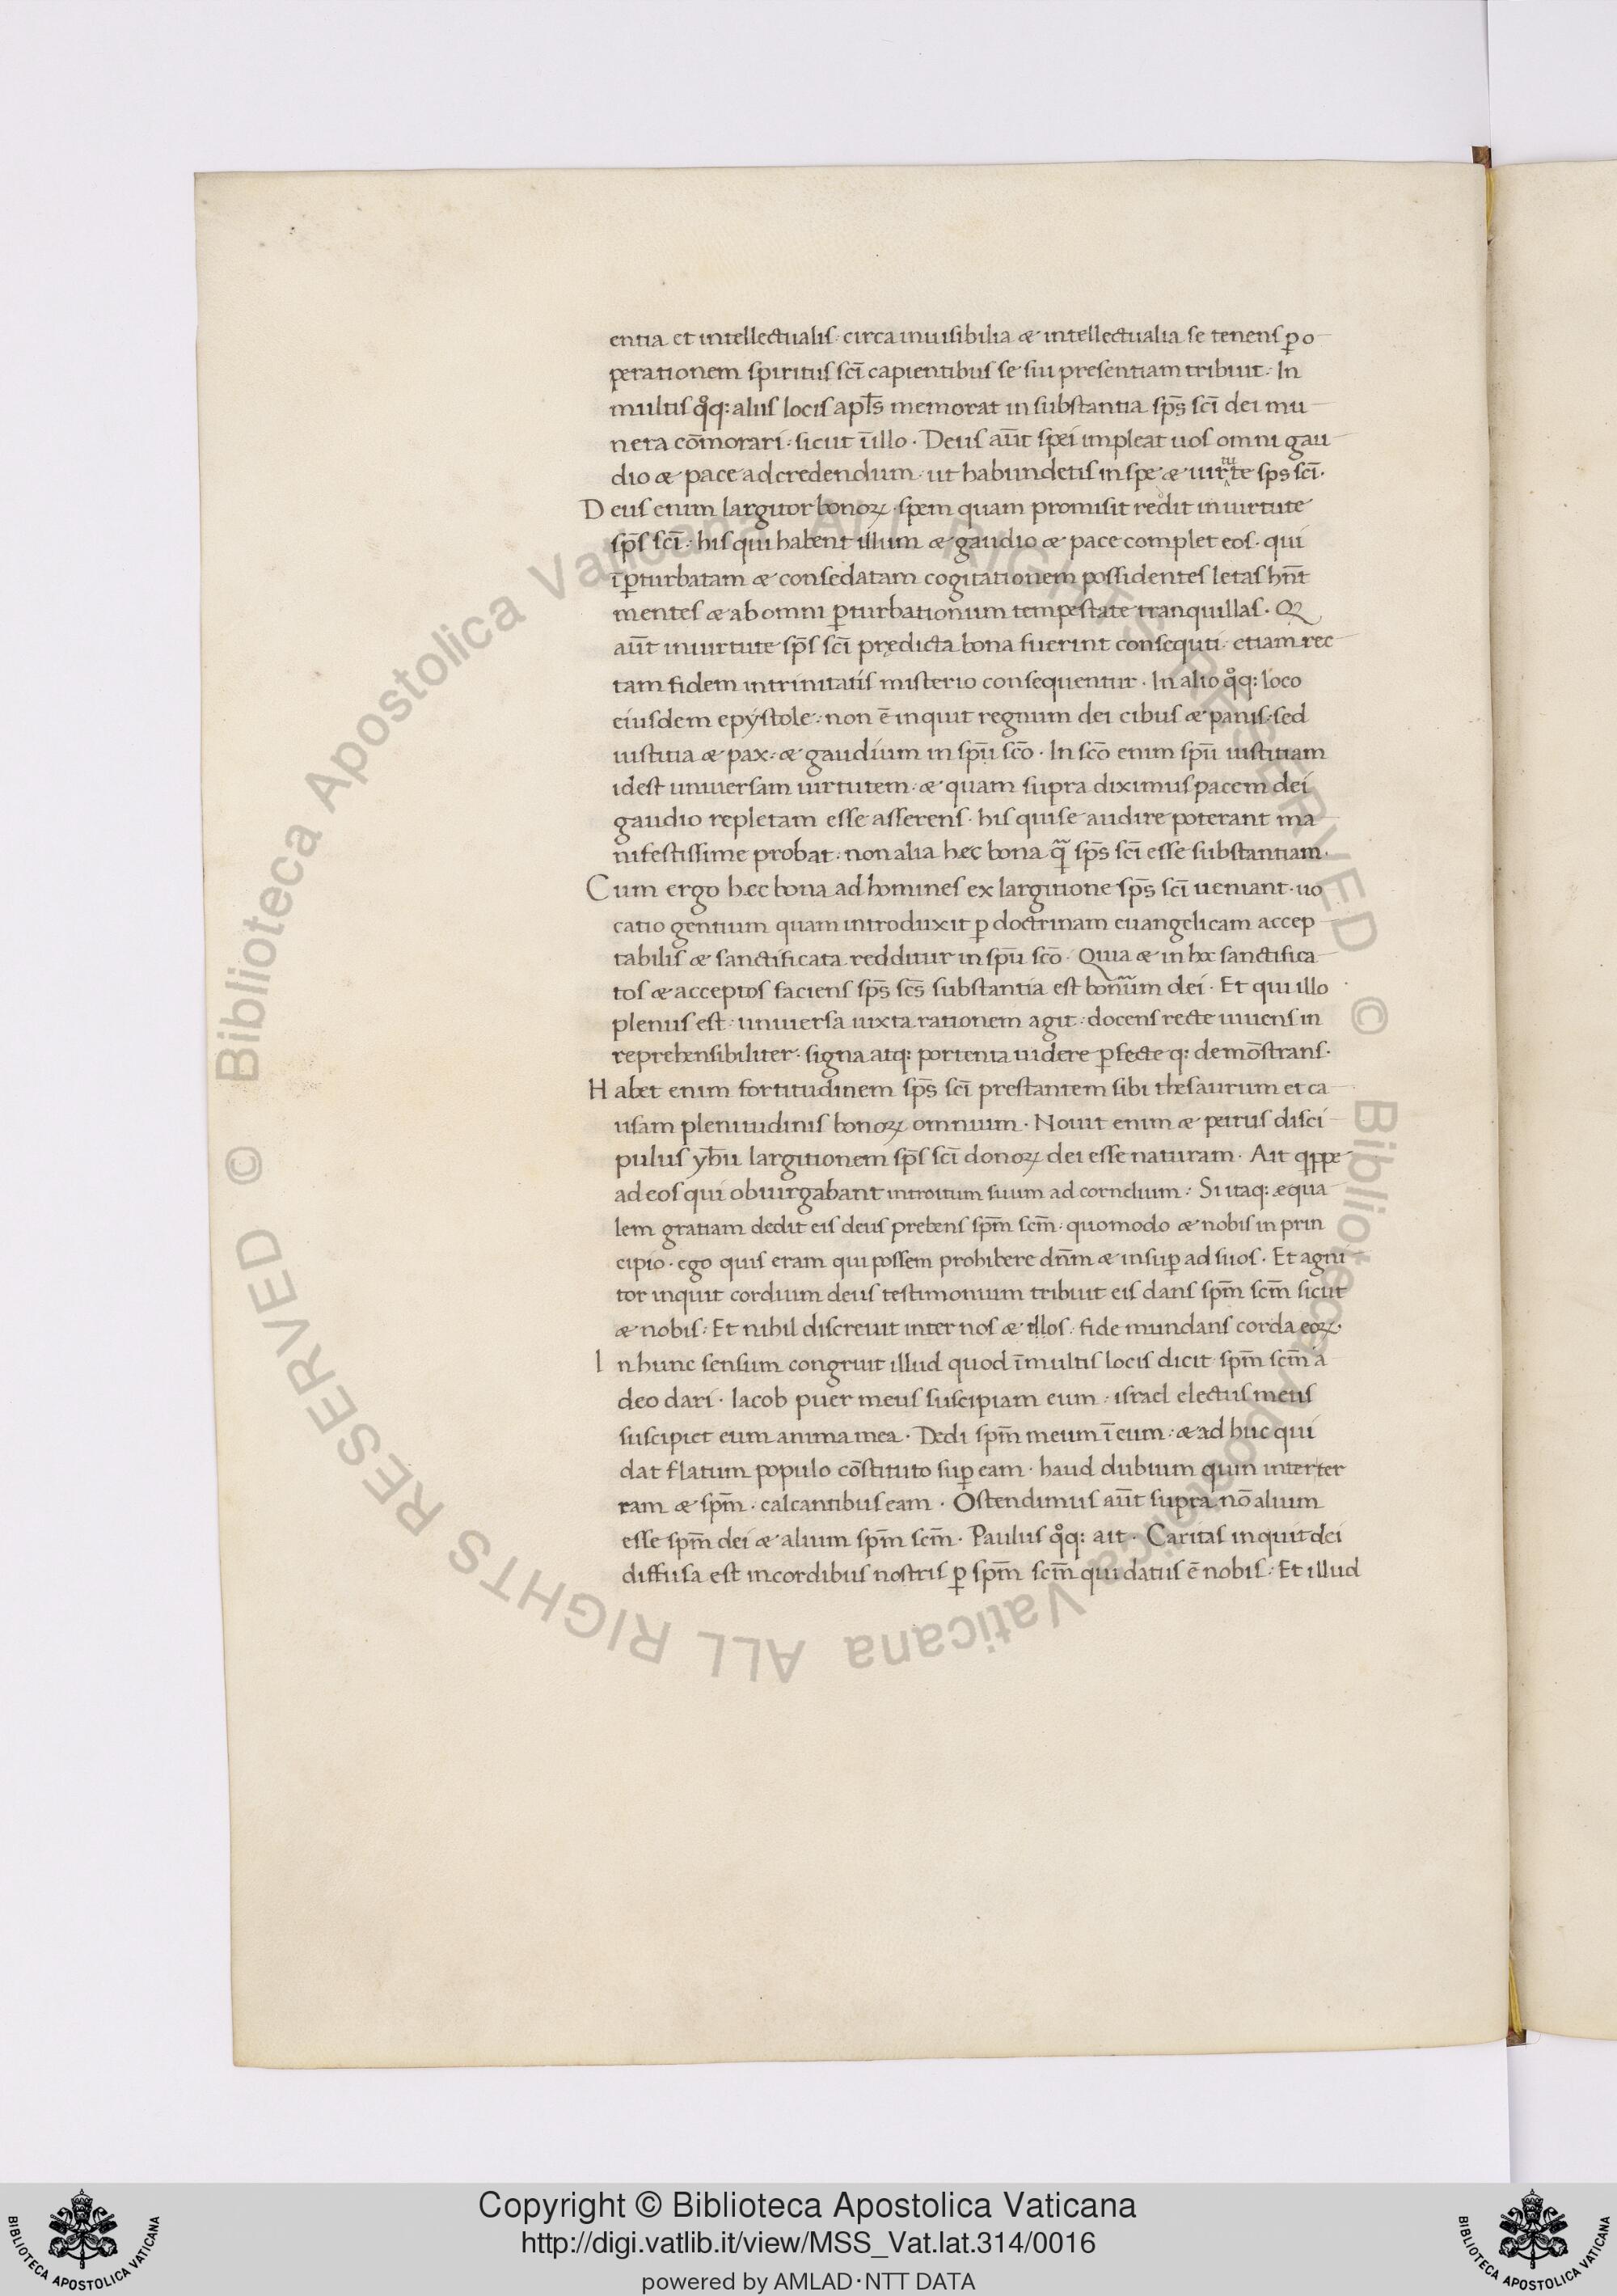 entia et intellectualis· circa inuisibilia & intellectualia se tenens ꝑ o
perationem spiritus sc̄i capientibus se sui presentiam tribuit· In
multis qͦq: aliis locis apl̄s memorat in substantia sp̄s sc̄i dei mu
nera cōmorari· sicut ī illo· Deus aūt spei impleat uos omni gau
dio & pace ad credendum· ut habundetis in spe & uirtute sp̄s sc̄i·
Deus enim largitor bonoꝝ· spem quam promisit reddit in uirtute
sp̄s sc̄i· his qui habent illum & gaudio & pace complet eos· qui
īꝑturbatam & consedatam cogitationem possidentes letas hn̄t
mentes & ab omni ꝑturbationum tempestate tranquillas· Q
aūt in uirtute sp̄s sc̄i prędicta bona fuerint consequti· etiam rec
tam fidem in trinitatis misterio consequentur· In alio qͦq: loco
eiusdem epystole· non ē inquit regnum dei cibus & panis· sed
iustitia & pax· & gaudium in sp̄u sc̄o· In sc̄o enim sp̄u iustitiam
id est uniuersam uirtutem· & quam supra diximus pacem dei
gaudio repletam esse asserens· his qui se audire poterant ma
nifestissime probat· non alia hec bona q̄ sp̄s sc̄i esse substantiam·
Cum ergo hec bona ad homines ex largitione sp̄s sc̄i ueniant· uo
catio gentium quam introduxit ꝑ doctrinam euangelicam accep
tabilis & sanctificata redditur in sp̄u sc̄o· Quia & in hoc sanctifica
tos & acceptos faciens sp̄s sc̄s substantia est bonūm dei· Et qui illo
plenus est· uniuersa iuxta rationem agit· docens recte uiuens in
reprehensibiliter· signa atq: portenta uidere ꝑfecte q: demōstrans·
Habet enim fortitudinem sp̄s sc̄i prestantem sibi thesaurum et ca
usam plenitudinis bonoꝝ omnium· Nouit enim & petrus disci
pulus yħu largitionem sp̄s sc̄i donoꝝ dei esse naturam· Ait qppe
ad eos qui obiurgabant introitum suum ad cornelium· Si itaq: æqua
lem gratiam dedit eis deus prebens sp̄m sc̄m· quomodo & nobis in prin
cipio· ego quis eram qui possem prohibere dn̄m & insuꝑ ad suos· Et agni
tor inquit cordium deus testimonium tribuit eis dans sp̄m sc̄m sicut
& nobis· Et nihil discreuit inter nos & illos· fide mundans corda eoꝝ·
In hunc sensum congruit illud quod ī multis locis dicit· sp̄m sc̄m a
deo dari· Iacob puer meus suscipiam eum· israel electus meus
suscipiet eum anima mea· Dedi sp̄m meum ī eum· & ad huc qui
dat flatum populo cōstituto suꝑ eam· haud dubium quin inter ter
ram & sp̄m· calcantibus eam· Ostendimus aūt supra nō alium
esse sp̄m dei & alium sp̄m sc̄m· Paulus qͦq: ait· Caritas inquit dei
diffusa est in cordibus nostris ꝑ sp̄m sc̄m qui datus ē nobis· Et illud
© Biblioteca Apostolica Vaticana ALL RIGHTS RESERVED © Biblioteca Apostolica Vaticana ALL RIGHTS RESERVED
Copyright © Biblioteca Apostolica Vaticana
http://digi.vatlib.it/view/MSS_Vat.lat.314/0016
powered by AMLAD·NTT DATA
BIBLIOTECA APOSTOLICA VATICANA
BIBLIOTECA APOSTOLICA VATICANA